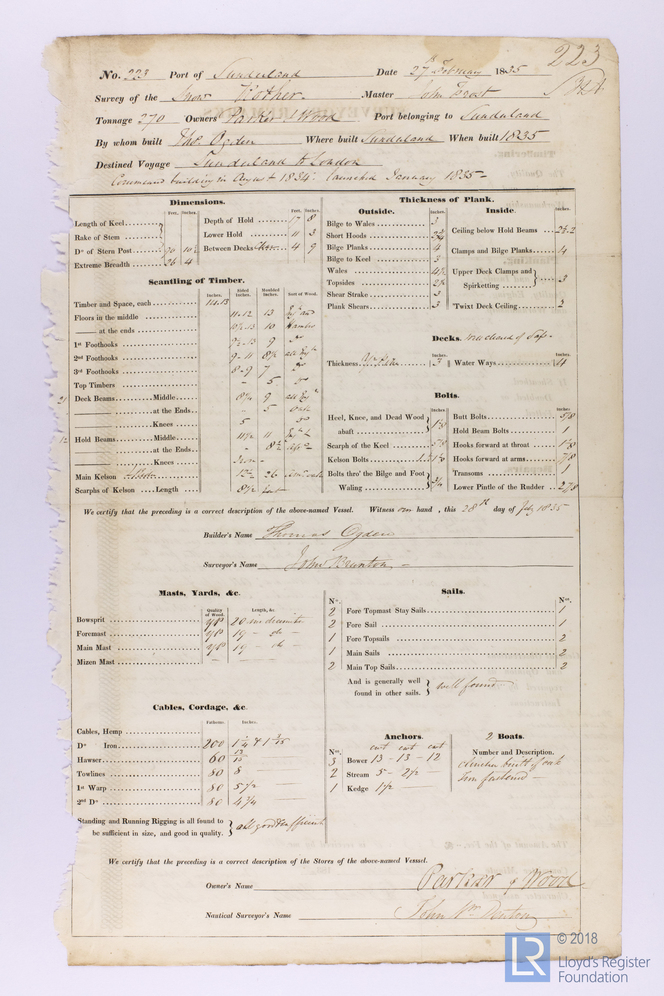 223
No. 223 Port of Sunderland Date 27 February 1835
Survey of the Snow Master John Frost
Tonnage 270 Owners Parker & Wood Port belonging to Sunderland
By whom built Thos. Ogden Where built Sunderland When built 1835
Destined Voyage Sunderland to London
building in August 1834 Launched January 1835
Dimensions.
Feet. Inches. Feet. Inches.
Length of Keel
Rake of Stem
Do of Stern Post
Extreme Breadth 26 4
Depth of Hold 17 8
Lower Hold 11 3
Between Decks 4 9
Scantling of Timber.
Inches. Sided Inches. Moulded Inches. Sort of Wood.
Timber and Space, each
Floors in the middle 11-12 13
—— at the ends 10
1st Foothooks 9
2nd Foothooks 9-11 8½
3rd Foothooks 8-9 7
Top Timbers - 5
Deck Beams Middle 8½ 9
—— at the Ends - 5
—— Knees 5
Hold Beams Middle 11½ 11
—— at the Ends
—— Knees Iron
Main Kelson 26
Scarphs of Kelson Length
Thickness of Plank.
Outside. Inches.
Bilge to Wales 3
Short Hoods
Bilge Planks 4
Bilge to Keel 3
Wales 4½
Topsides 2½
Shear Strake 3
Plank Shears 3
Inside. Inches.
Ceiling below Hold Beams
Clamps and Bilge Planks 4
Upper Deck Clamps and Spirketting 3
Twixt Deck Ceiling 2
Decks.
Inches. Inches.
Thickness 3 Water Ways 4
Bolts.
Inches. Inches.
Heel, Knee, and Dead Wood
abaft
Scarph of the Keel
Kelson Bolts
Bolts thro' the Bilge and Foot
Waling ¾
Butt Bolts 5/8
Hold Beam Bolts 1
Hooks forward at throat 1⅛
Hooks forward at arms 7/8
Transoms 1
Lower Pintle of the Rudder
We certify that the preceding is a correct description of the above-named Vessel. Witness our hand, this 28th day of 1835
Builder's Name Thomas Ogden
Surveyor's Name John Brunton
Masts, Yards, &c.
Quality of Wood. Length, &c.
Bowsprit YP 20 in diameter
Foremast YP 19 - do -
Main Mast YP 19 - do -
Mizen Mast
Sails.
No. No.
2 Fore Topmast Stay Sails 1
2 Fore Sail 1
1 Fore Topsails 2
1 Main Sails 2
2 Main Top Sails 2
And is generally well
found in other sails. well found
Cables, Cordage, &c.
Fathoms. Inches.
Cables, Hemp
Do Iron 200
Hawser 60
Towlines 80 8
1st Warp 80 5½
2nd Do 80 4¾
Standing and Running Rigging is all found to
be sufficient in size, and good in quality. all good & sufficient
Anchors.
No. cwt cwt cwt
3 Bower 13 - 13 - 12
2 Stream 5 - 2½
1 Kedge 1½
2 Boats.
Number and Description.
Clincher built of oak
Iron fastened
We certify that the preceding is a correct description of the Stores of the above-named Vessel.
Owner's Name Parker & Wood
Nautical Surveyor's Name
LR
© 2018
Lloyd's Register
Foundation